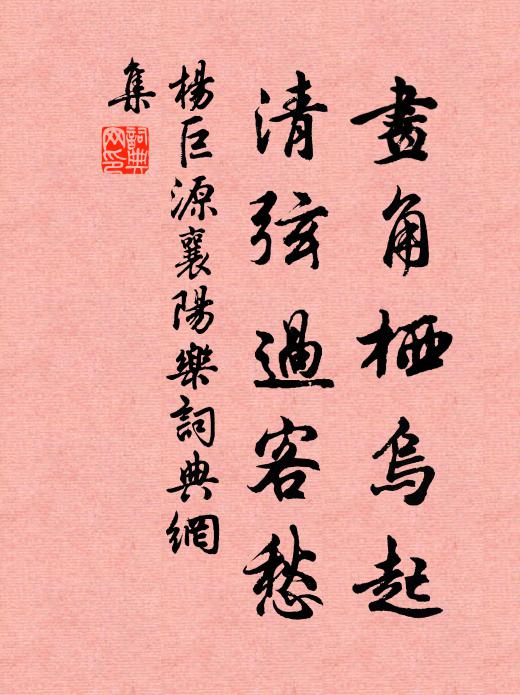 畫角栖烏起
清弦過客愁
楊巨源襄陽樂詞典網
集
詞典
网印